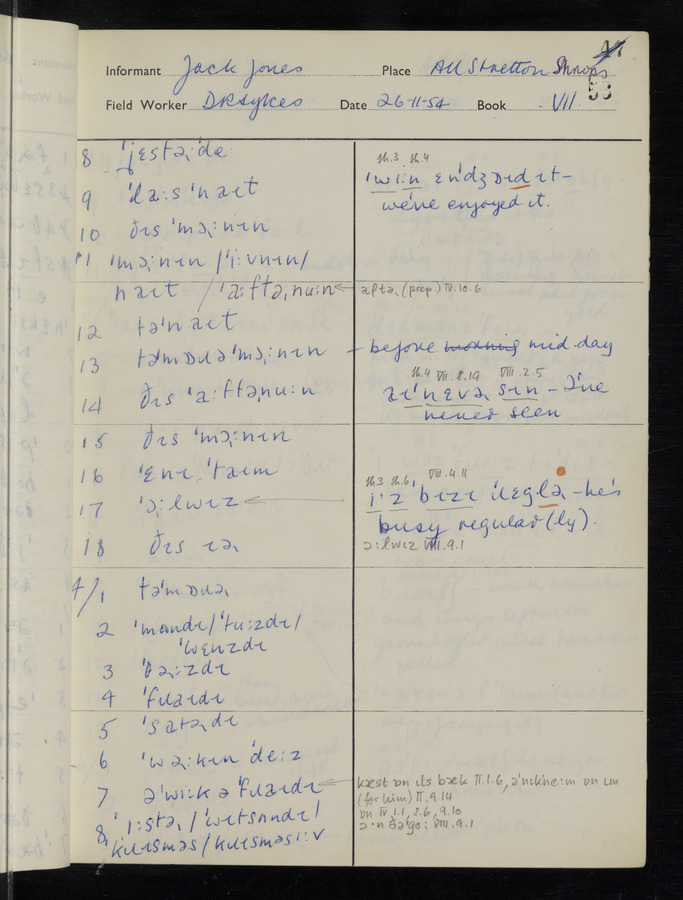 47
Informant Jack Jones Place All Stretton Shrops
53
Field Worker D R Sykes Date 26-11-54 Book VII
8 ˈjɛstəɹˈdɛ
9 ˈlaːs ˈnaɪt
10 ðɪs ˈməɹːnɪn
11 ˈməɹːnɪn / ˈiːvnɪn /
naɪt / ˈaːftəɹnuːn
12 təˈnaɪt
13 təmɒɹə ˈməɹːnɪn – before mid-day
14 ðɪs ˈaːftəɹnuːn
15 ðɪs ˈməɹːnɪn
16 ˈɛnɪˌtaɪm
17 ˈɔːlwɪz
18 ðɪs ɪəɹ
4/1 təˈmɒɹəɹ
2 ˈmʌndɪ / ˈtuːzdɪ /
ˈwɛnzdɪ
3 ˈθəɹːzdɪ
4 ˈfɹaɪdɪ
5 ˈsatəɹdɪ
6 ˈwəɹːkɪn ˈdeːz
7 əˈwiːk əˈfɹaɪdɪ
8 ˈiːstəɹ / ˈwɪtsʌndɪ /
kɹɪsməs / kɹɪsməs iːv
th.3 th.4
ˈwiːn ɛnˈdʒɔɪd ɪt –
we've enjoyed it.
aftəɹ (prep.) IV.10.6
th.4 VII.8.19 VIII.2.5
aɪˈnɛvəɹ sɪn – I've
never seen
th.3 th.6 VIII.4.11
iˈz ˈbɪzɪ ˈɹɛglə – he's
busy regular(ly).
ɔːlwɪz VIII.9.1
kæst ɒn ɪts bæk III.1.6, əˈnɪkneːm ɒn ɪm
(for him) II.9.14
ɒn IV.1.1, 8.6, 9.10
VIII.9.1